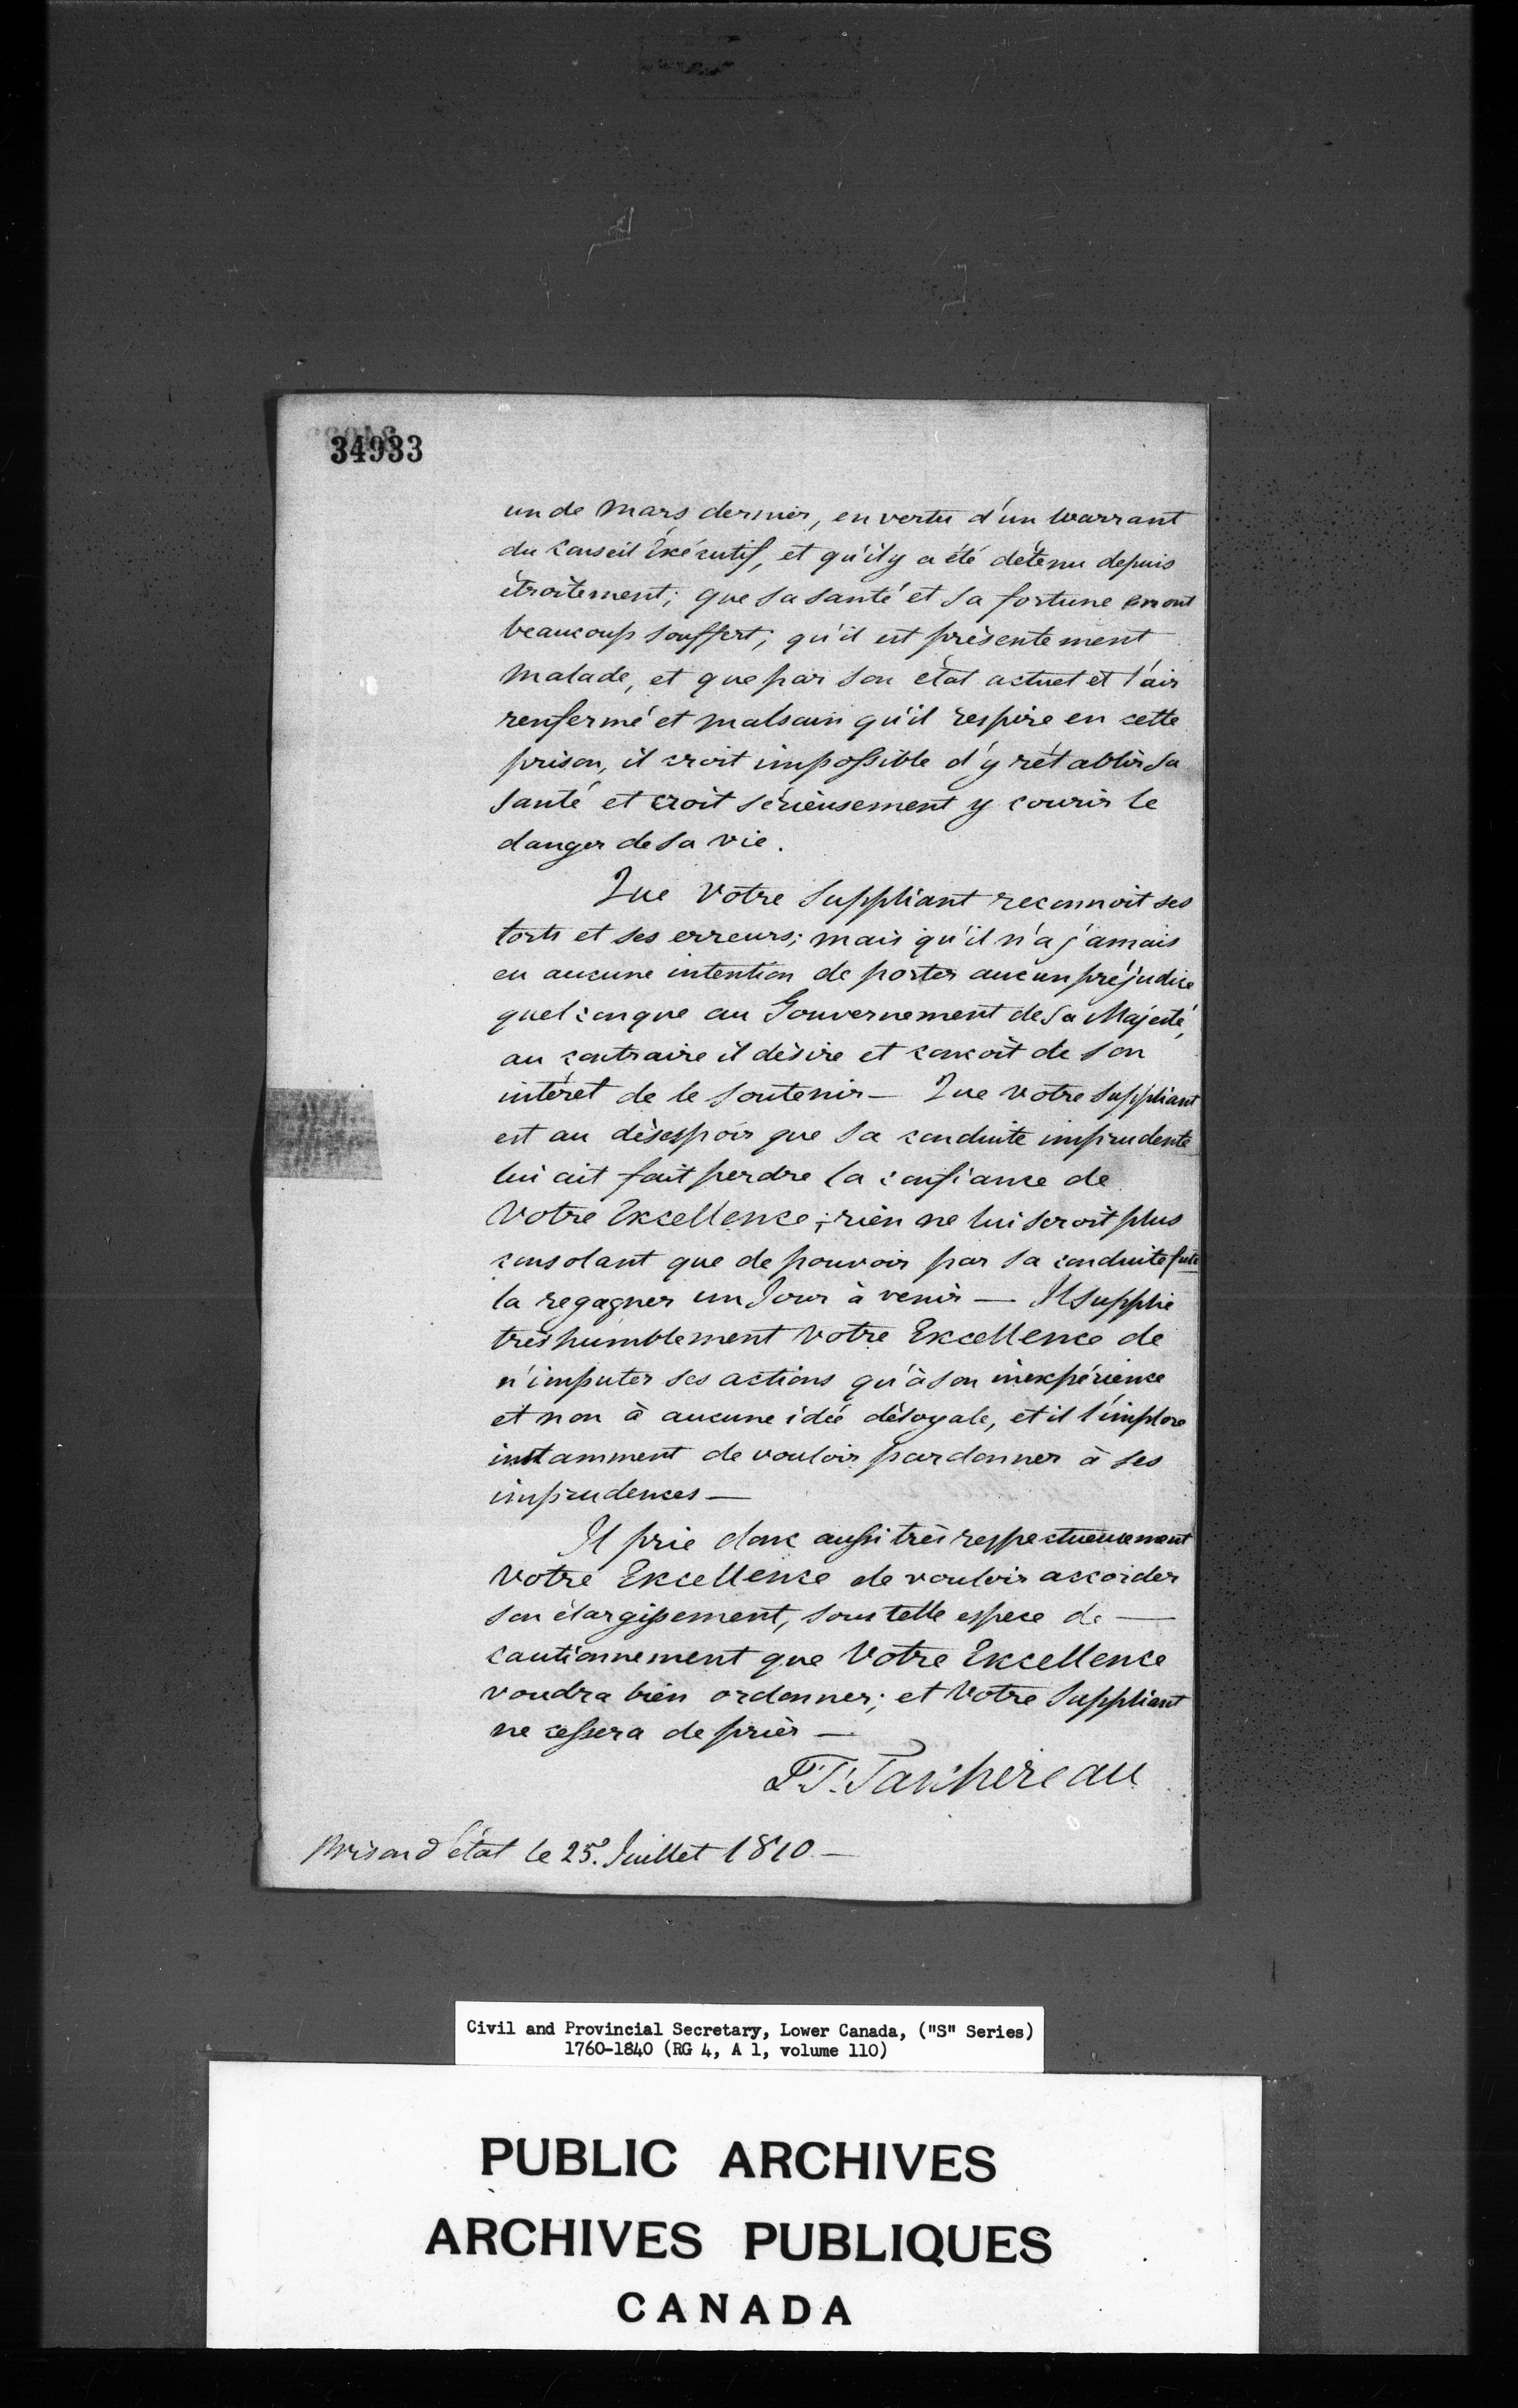 34933
un de Mars dernier, en vertu d'un Warrant
du Conseil Éxécutif, et qu'il y a été détenu depuis
étroitement; que sa santé et sa fortune en ont
beaucoup souffert, qu'il est présentement
malade, et que par son état actuel et l'air
renfermé et malsain qu'il respire en cette
prison, il croit impossible d'y rétablir sa
santé et croit sérieusement y courir le
danger de sa vie.
Que Votre Suppliant reconnoit ses
torts et ses erreurs; mais qu'il n'a jamais
eu aucune intention de porter aucun préjudice
quelconque au Gouvernement de Sa Majesté,
au contraire il désire et conçoit de son
intéret de le soutenir — Que Votre Suppliant
est au désespoir que sa conduite imprudente
lui ait fait perdre la confiance de
Votre Excellence; rien ne lui seroit plus
consolant que de pouvoir par sa conduite
la regagner un Jour à venir — Il supplie
très humblement Votre Excellence de
n'imputer ses actions qu'à son inexpérience
et non à aucune idée déloyale, et il l'implore
instamment de vouloir pardonner à ses
imprudences —
Il prie donc aussi très respectueusement
Votre Excellence de vouloir accorder
son élargissement, sous telle espece de —
cautionnement que Votre Excellence
voudra bien ordonner; et Votre Suppliant
ne cessera de prier —
T. Taschereau
Prison d'état le 25. Juillet 1810 —
Civil and Provincial Secretary, Lower Canada, ("S" Series)
1760-1840 (RG 4, A 1, volume 110)
PUBLIC ARCHIVES
ARCHIVES PUBLIQUES
CANADA